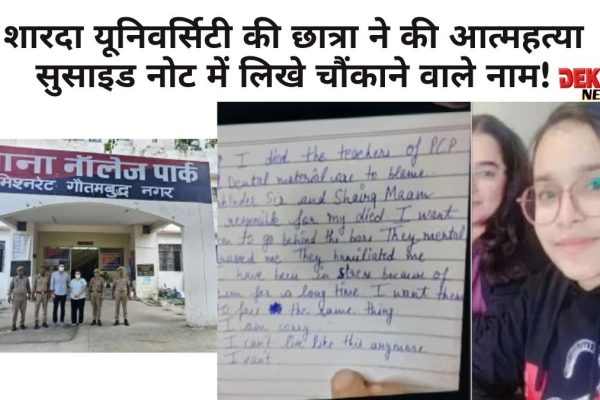 शारदा यूनिवर्सिटी की छात्रा ने की आत्महत्या
सुसाइड नोट में लिखे चौंकाने वाले नाम!
DEK
NE
थाना नॉलेज पार्क
मिश्नरेट गौतमबुद्ध नगर
I died the teachers of PCP
Dental material are to blame
Sir and Shairg Maam
for my died I want
to go behind the bars They mental
me They humiliated me
have been in stress because of
for a long time I want them
the same thing
I am sorry
I can't live like this anymore
I cant